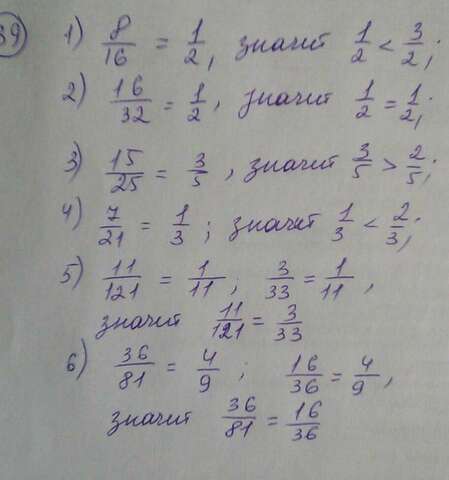 39
1) 8/16 = 1/2, значит 1/2 < 3/2;
2) 16/32 = 1/2, значит 1/2 = 1/2;
3) 15/25 = 3/5, значит 3/5 > 2/5;
4) 7/21 = 1/3; значит 1/3 < 2/3;
5) 11/121 = 1/11; 3/33 = 1/11,
значит 11/121 = 3/33
6) 36/81 = 4/9; 16/36 = 4/9,
значит 36/81 = 16/36